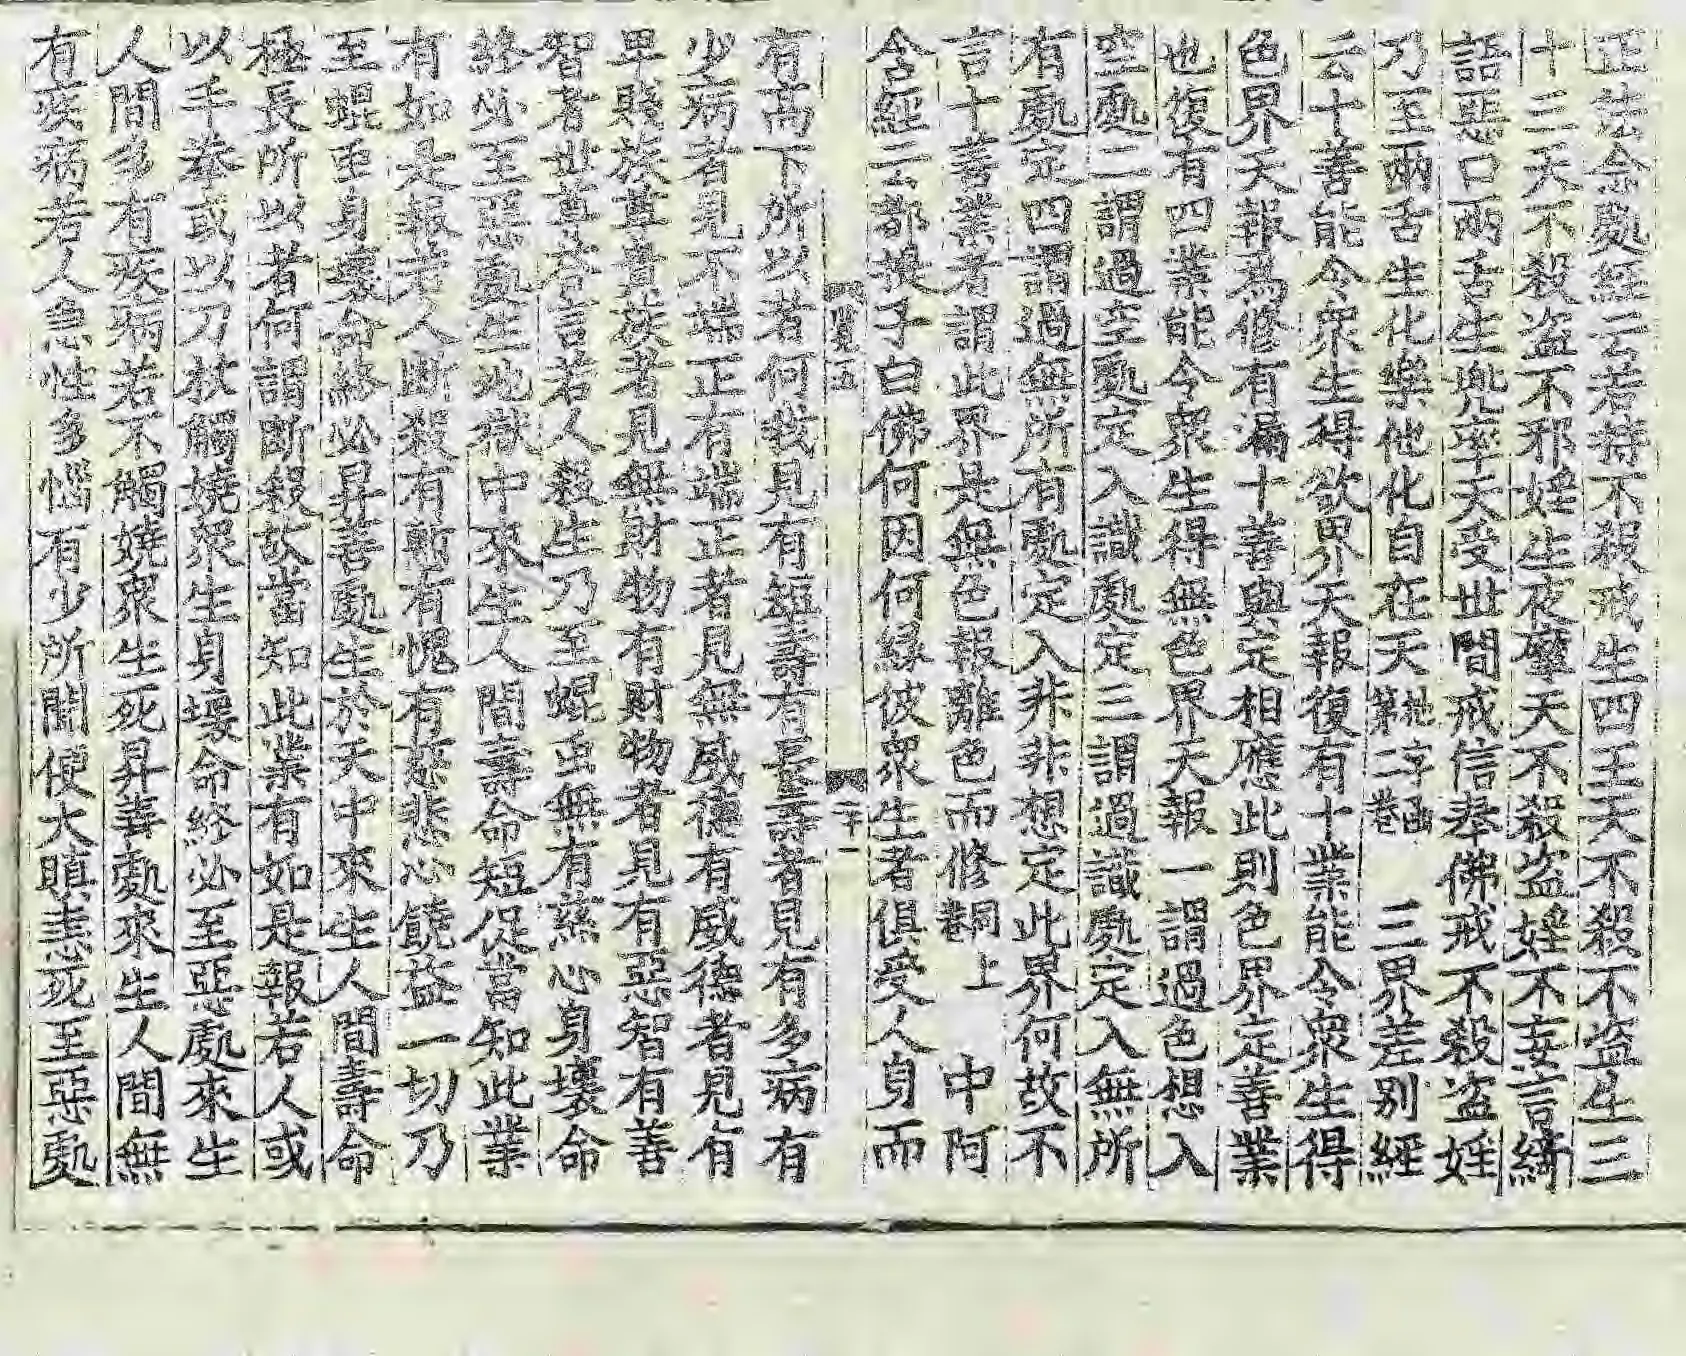 正法念處經云若持不殺戒生四王天不殺不盜生三
十三天不殺盜不邪婬生夜摩天不殺盜婬不妄言綺
語惡口兩舌生兜率天受世間戒信奉佛戒不殺盜婬
乃至兩舌生化樂他化自在天 三界差別經
云十善能令衆生得欲界天報復有十業能令衆生得
色界天報爲修有漏十善與定相應此則色界定善業
也復有四業能令衆生得無色界天報一謂過色想入
空處二謂過空處定入識處定三謂過識處定入無所
有處定四謂過無所有處定入非非想定此界何故不
言十善業者謂此界是無色報離色而修 上 中阿
含經云都提子白佛何因何縁彼衆生者俱受人身而
二十一
有高下所以者何我見有短壽有長壽者見有多病有
少病者見不端正有端正者見無威德有威德者見有
卑賤族尊貴族者見無財物有財物者見有惡智有善
智者世尊答言若人殺生乃至蜫虫無有慈心身壞命
終必至惡處生地獄中來生人間壽命短促當知此業
有如是報若人斷殺有慚有愧有慈悲心饒益一切乃
至蜫虫身壞命終必昇善處生於天中來生人間壽命
極長所以者何謂斷殺故當知此業有如是報若人或
以手拳或以刀杖觸嬈衆生身壞命終必至惡處來生
人間多有疾病若不觸嬈衆生死昇善處來生人間無
有疾病若人急性多惱有少所聞便大瞋恚死至惡處